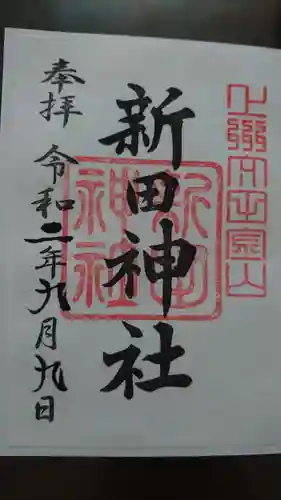 新田神社
新田
神社
奉拝
令和二年九月九日